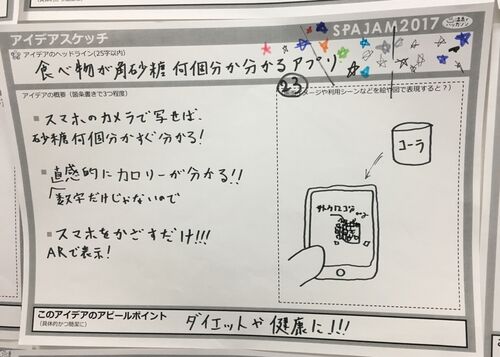 アイデアスケッチ
SPAJAM2017
アイデアのヘッドライン(25字以内)
食べ物が角砂糖何個分か分かるアプリ
アイデアの概要(箇条書きで3つ程度)
■スマホのカメラで写せば、
砂糖何個分かすぐ分かる!
■直感的にカロリーが分かる!!
数字だけじゃないので
■スマホをかざすだけ!!!
ARで表示!
23
メージや利用シーンなどを絵や図で表現すると?)
コーラ
このアイデアのアピールポイント
(具体的かつ簡潔に)
ダイエットや健康に!!!